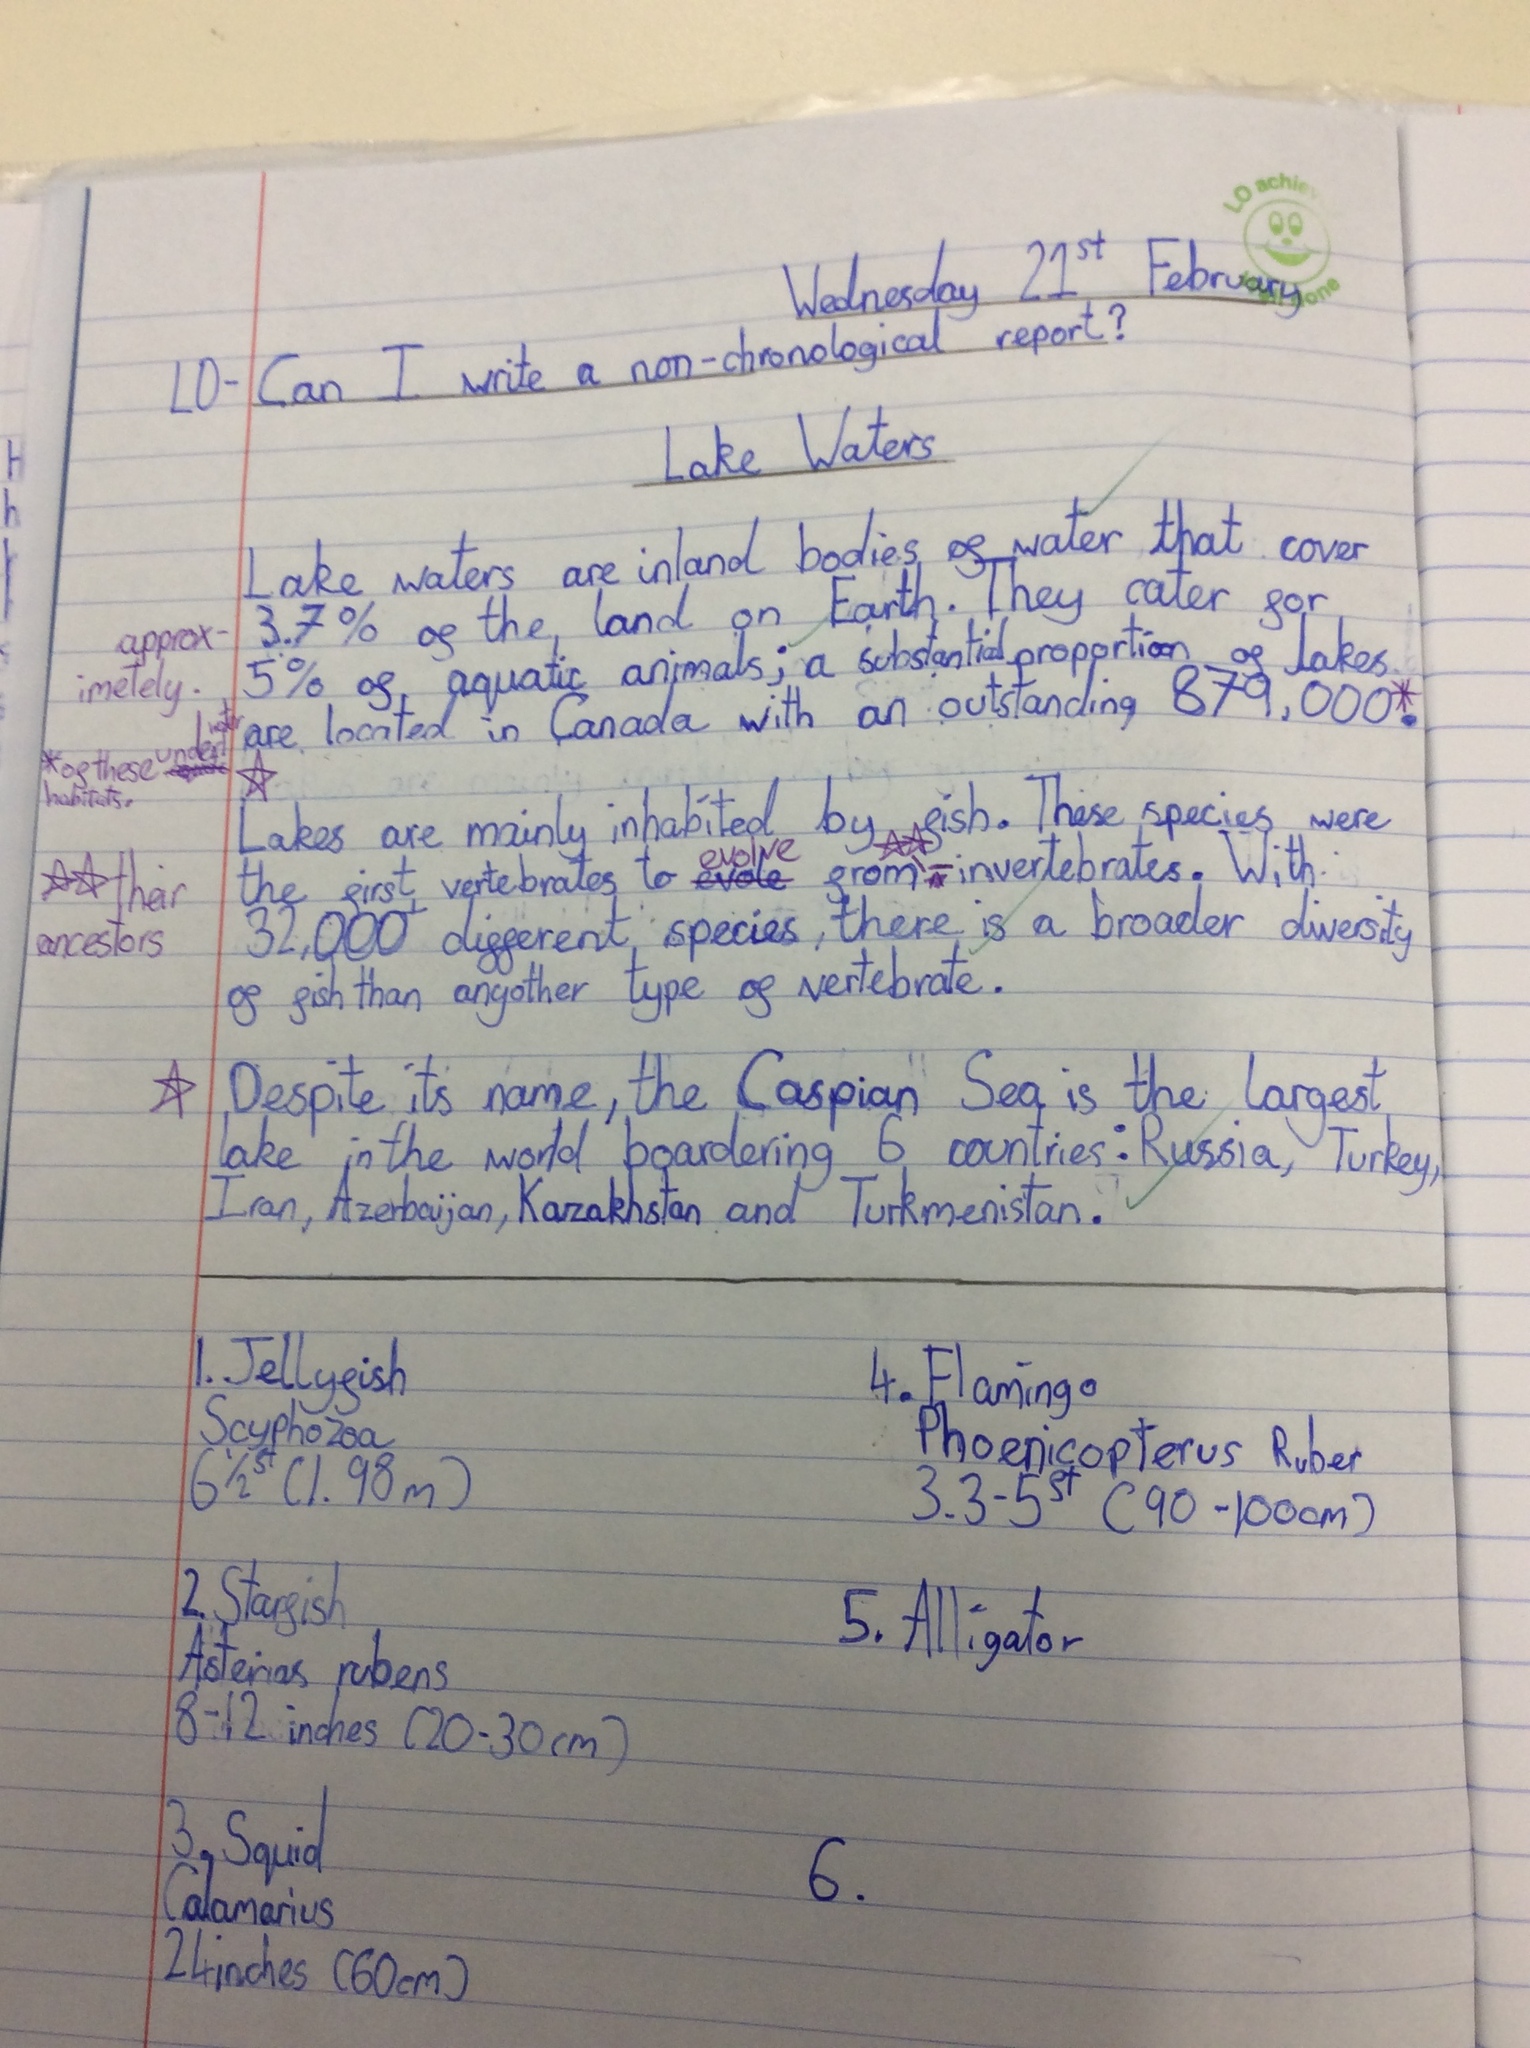 LO achie
one
Wednesday 21st February
LO- Can I write a non-chronological report?
Lake Waters
Lake waters are inland bodies of water that cover
approx- 3.7% of the land on Earth. They cater for
imetely. 5% of aquatic animals; a substantial proportion of lakes
are located in Canada with an outstanding 879,000*.
*of these under water
habitats.
☆
Lakes are mainly inhabited by fish. These species were
☆☆ their the first vertebrates to evole evolve from ☆☆ invertebrates. With
ancestors 32,000 different species, there is a broader diversity
of fish than anyother type of vertebrate.
☆ Despite its name, the Caspian Sea is the largest
lake in the world boardering 6 countries: Russia, Turkey,
Iran, Azerbaijan, Kazakhstan and Turkmenistan.
1. Jellyfish
Scyphozoa
6 1/2 ft (1.98m)
2. Starfish
Asterias rubens
8-12 inches (20-30cm)
3. Squid
Calamarius
24inches (60cm)
4. Flamingo
Phoenicopterus Ruber
3.3-5ft (90-100cm)
5. Alligator
6.